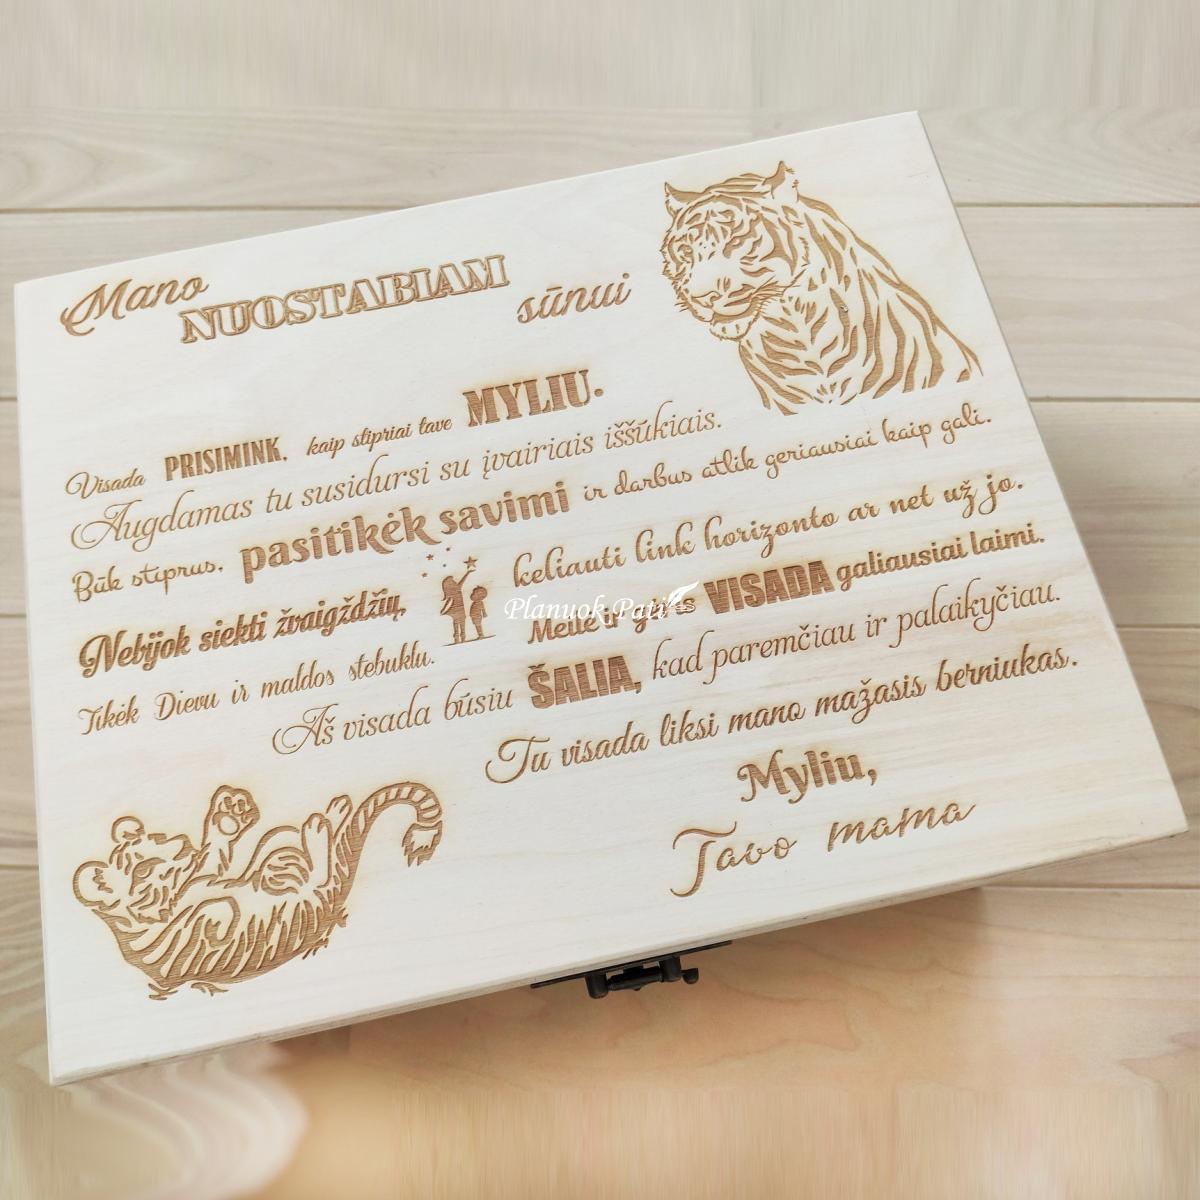 Mano NUOSTABIAM sūnui
Visada PRISIMINK, kaip stipriai tave MYLIU.
Augdamas tu susidursi su įvairiais iššūkiais.
Būk stiprus, pasitikėk savimi ir darbus atlik geriausiai kaip gali.
Nebijok siekti žvaigždžių, keliauti link horizonto ar net už jo.
Tikėk Dievu ir maldos stebuklu. Meilė ir VISADA galiausiai laimi.
Aš visada būsiu ŠALIA, kad paremčiau ir palaikyčiau.
Tu visada liksi mano mažasis berniukas.
Myliu,
Tavo mama
Planuok Pati